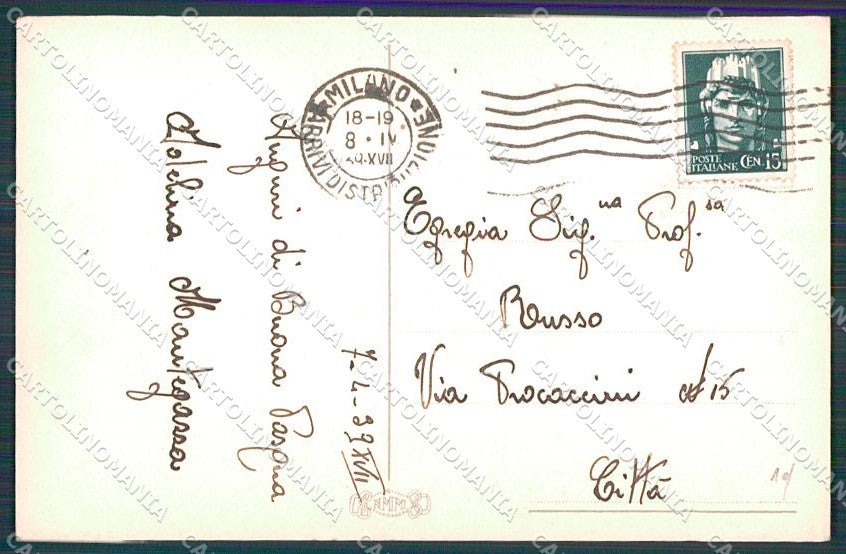 MILANO
18-19
8 · IV
39·XVII
ARRIVI DISTRIBUZIONE
POSTE
ITALIANE CEN. 15
Egregia Sig.na Prof.sa
Russo
Via Procaccini № 15
Città
7-4-39 XVII
Auguri di Buona Pasqua
Mantegazza
NMM
CARTOLINOMANIA